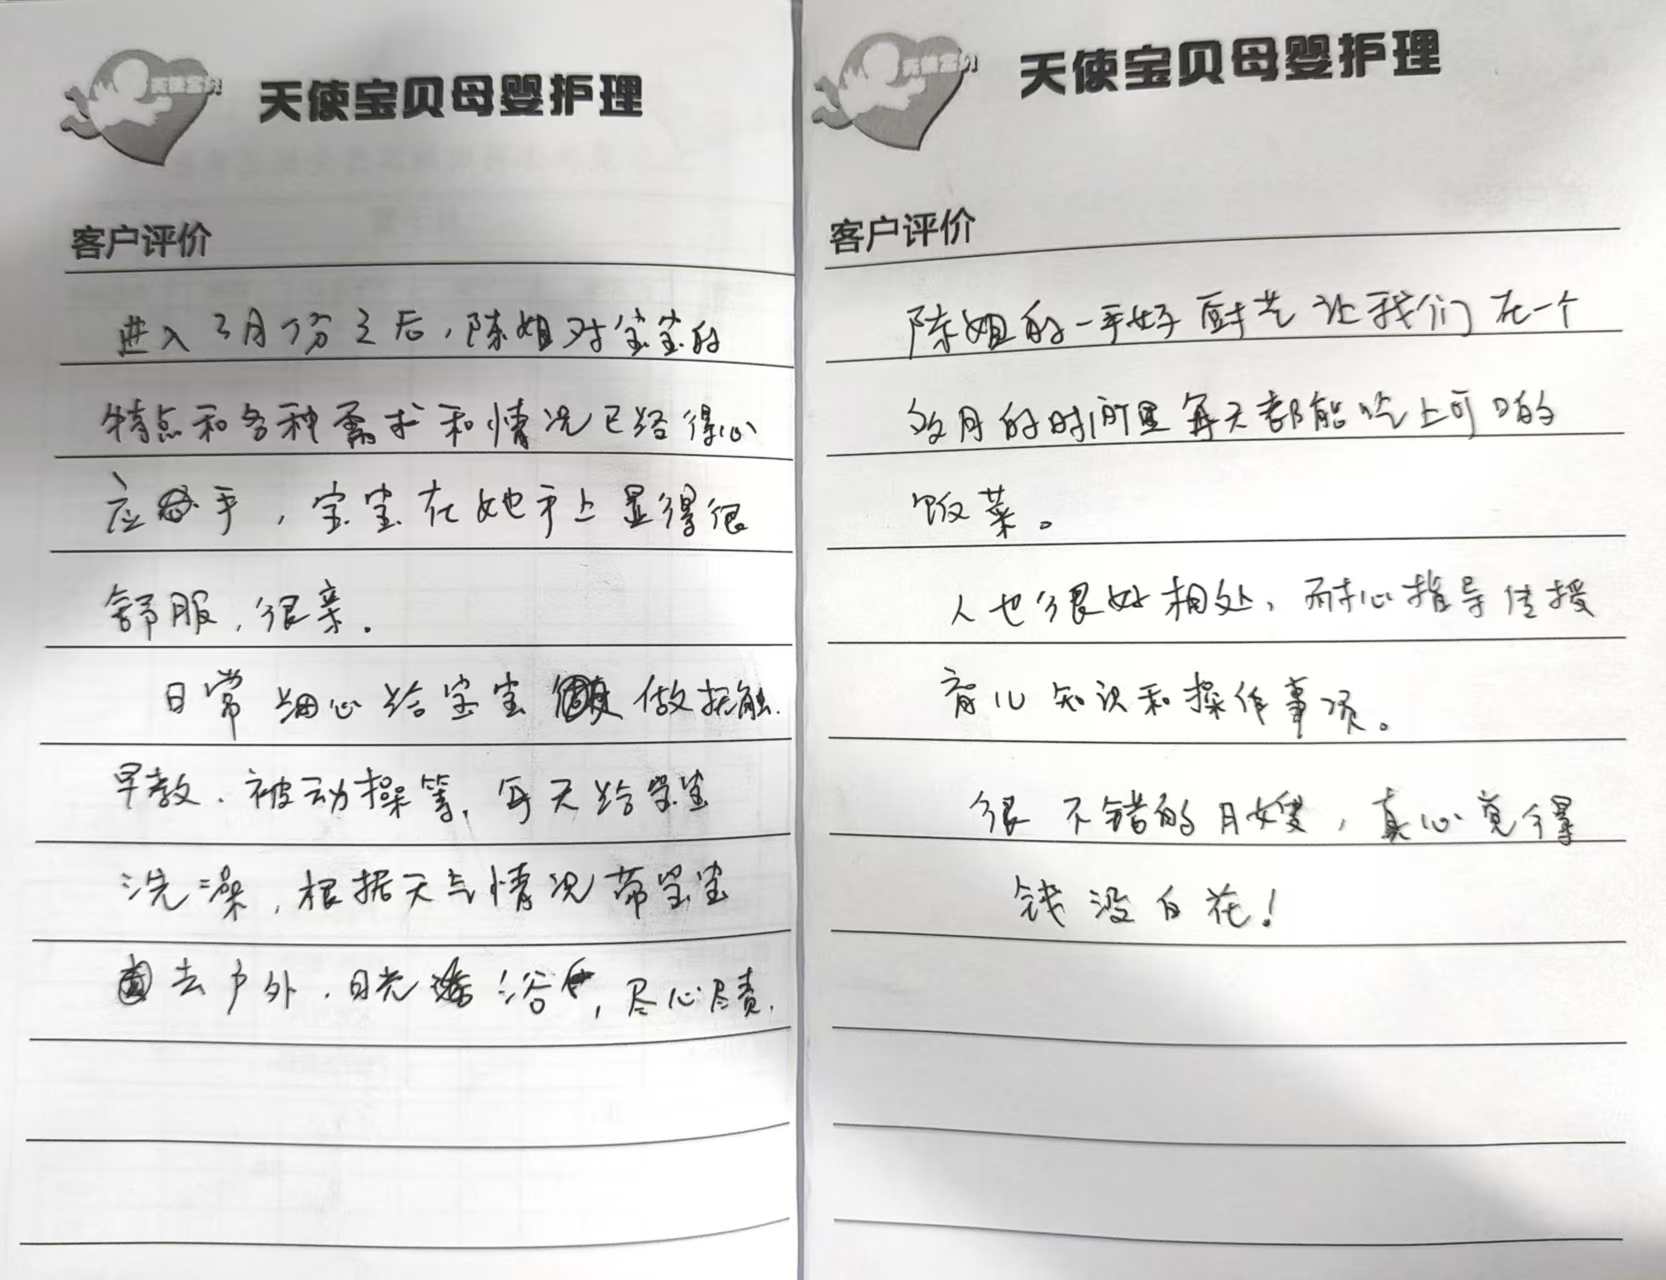 天使宝贝
天使宝贝母婴护理
客户评价
进入3月份之后,陈姐对宝宝的
特点和各种需求和情况已经得心
应手,宝宝在她手上显得很
舒服,很亲。
日常细心给宝宝做抚触、
早教、被动操等,每天给宝宝
洗澡,根据天气情况带宝宝
去户外、日光浴,尽心尽责。
天使宝贝
天使宝贝母婴护理
客户评价
陈姐的一手好厨艺让我们在一个
多月的时间里每天都能吃上可口的
饭菜。
人也很好相处,耐心指导传授
育儿知识和操作事项。
很不错的月嫂,真心觉得
钱没白花!